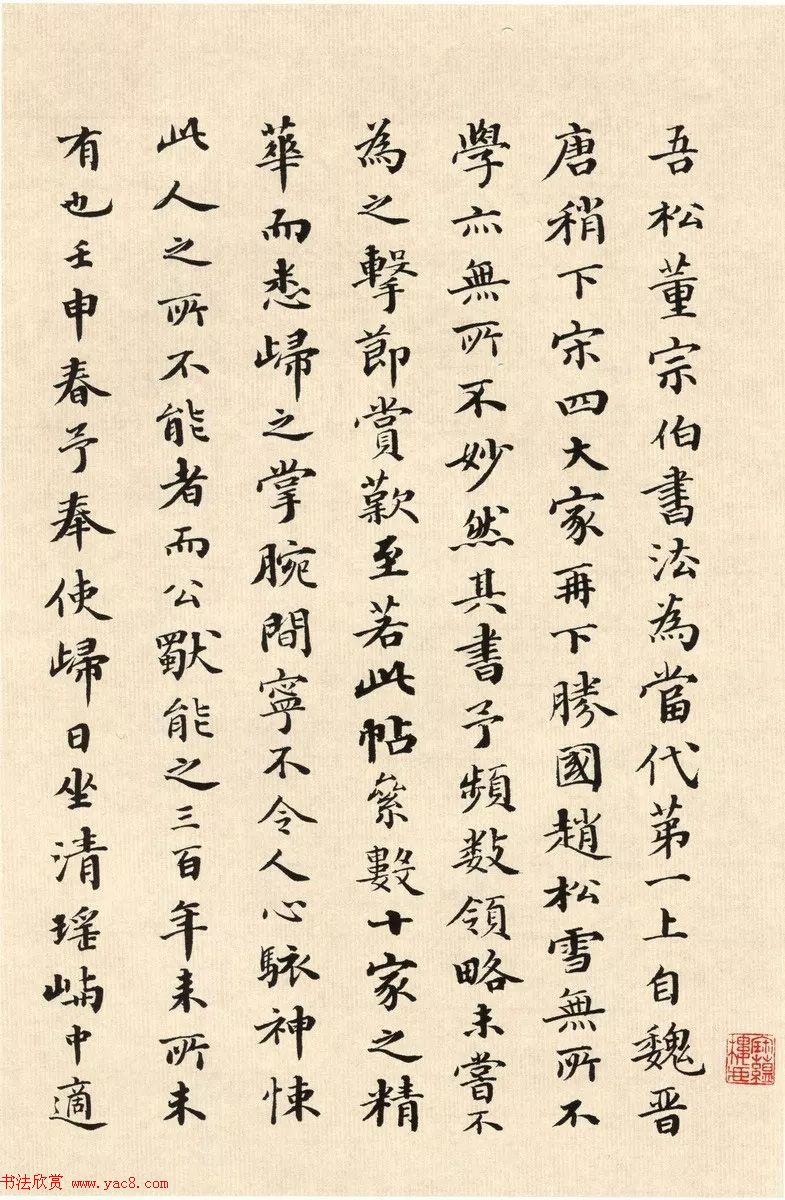 吾松董宗伯書法為當代第一上自魏晋
唐稍下宋四大家再下勝國趙松雪無所不
學亦無所不妙然其書予頻数領略未嘗不
為之擊節賞歎至若此帖縈數十家之精
華而悉歸之掌腕間寧不令人心駭神悚
此人之所不能者而公獸能之三百年来所未
有也壬申春予奉使歸日坐清瑶嶼中適
书法欣赏
www.yac8.com